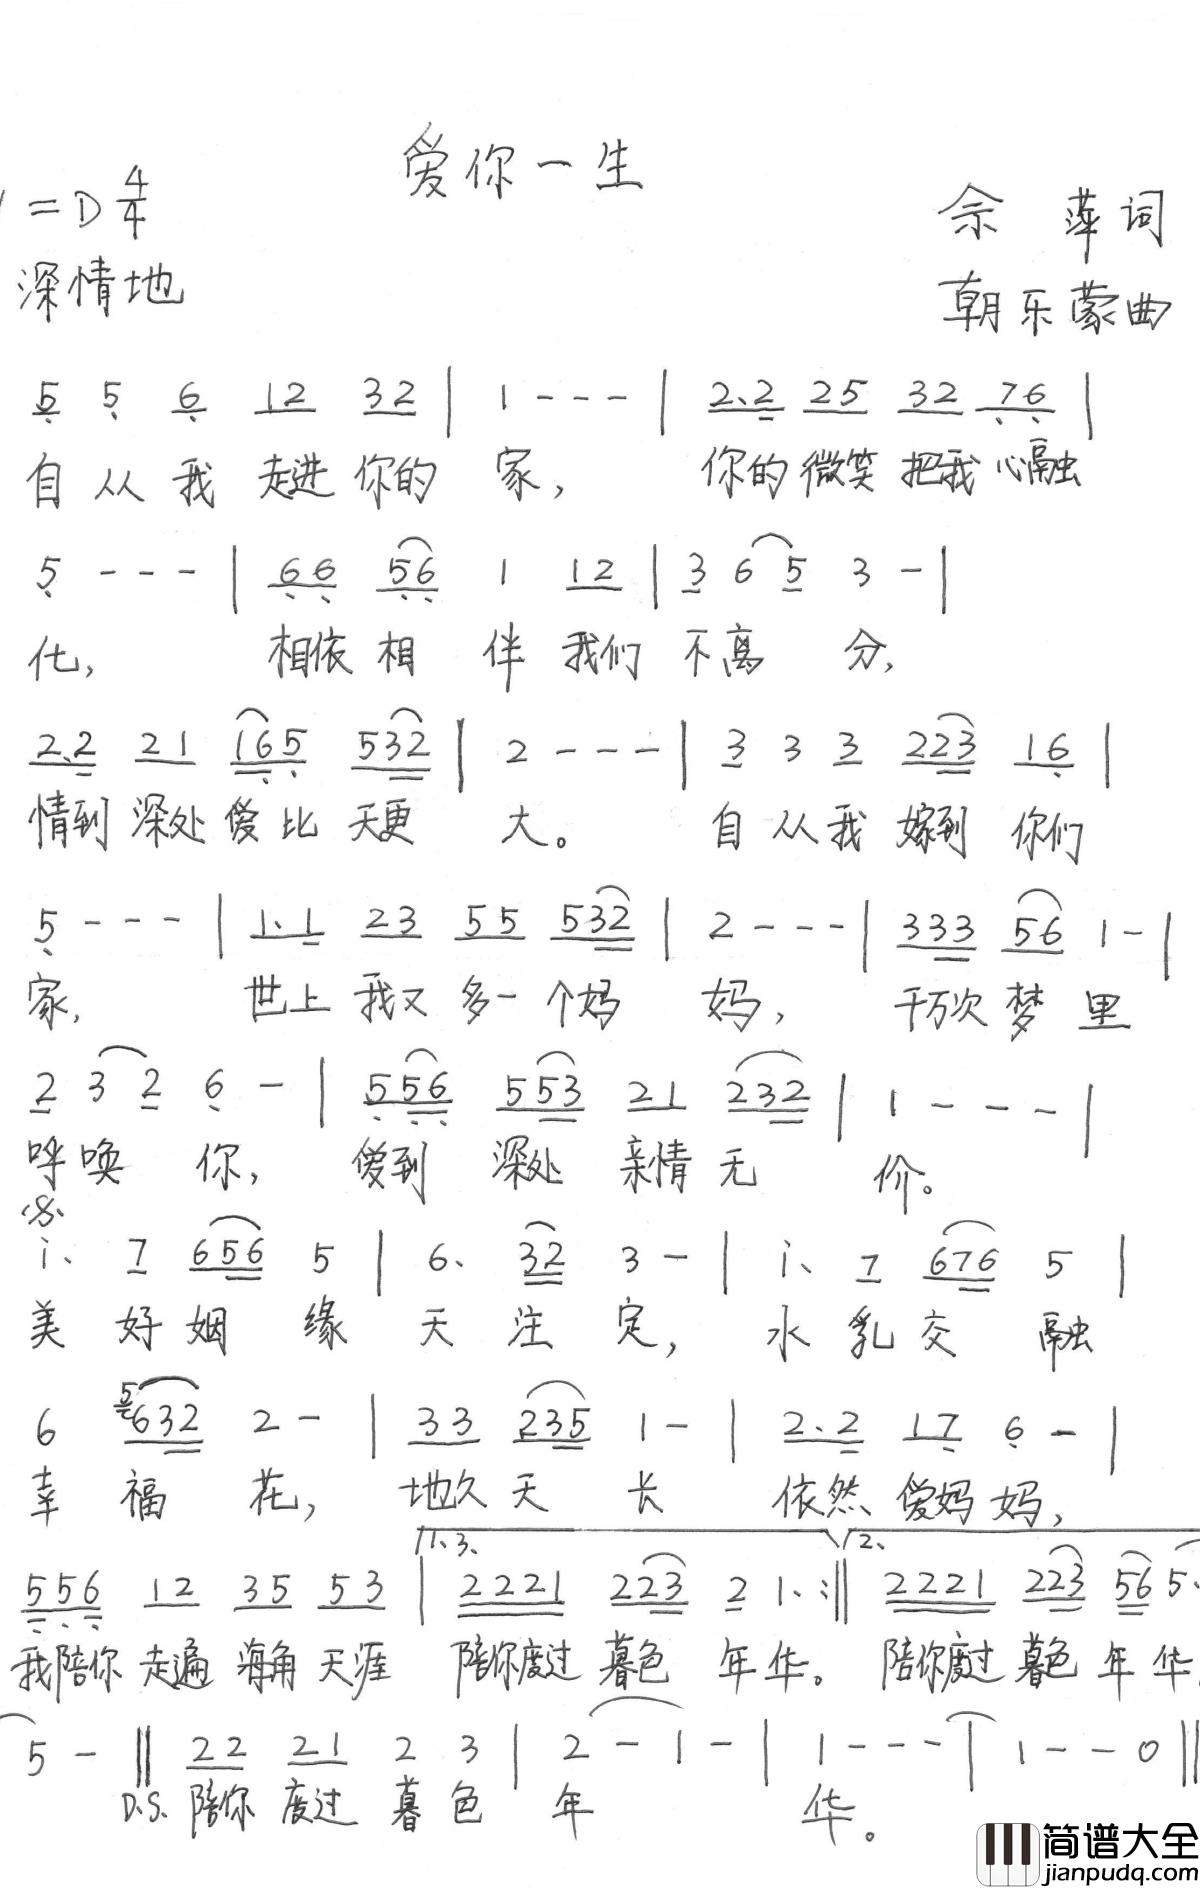 爱你一生
1=D 4/4
佘萍词
深情地
朝乐蒙曲
5 5 6 12 32 | 1 - - - | 2.2 25 32 76 |
自从我走进你的家，你的微笑把我心融
5 - - - | 66 56 1 12 | 3 6 5 3 - |
化，相依相伴我们不离分，
2.2 21 165 532 | 2 - - - | 3 3 3 223 16 |
情到深处爱比天更大。自从我嫁到你们
5 - - - | 1.1 23 55 532 | 2 - - - | 333 56 1 - |
家，世上我又多一个妈妈，千万次梦里
2 3 2 6 - | 556 553 21 232 | 1 - - - |
呼唤你，爱到深处亲情无价。
i. 7 656 5 | 6. 32 3 - | i. 7 676 5 |
美好姻缘天注定，水乳交融
6 5632 2 - | 33 235 1 - | 2.2 17 6 - |
幸福花，地久天长依然爱妈妈，
1.3. 2.
556 12 35 53 | 2221 223 2 1. :|| 2221 223 56 5.
我陪你走遍海角天涯陪你度过暮色年华。陪你度过暮色年华。
5 - || 22 21 2 3 | 2 - 1 - | 1 - - - | 1 - - 0 ||
D.S. 陪你度过暮色年华。
简谱大全
jianpudq.com